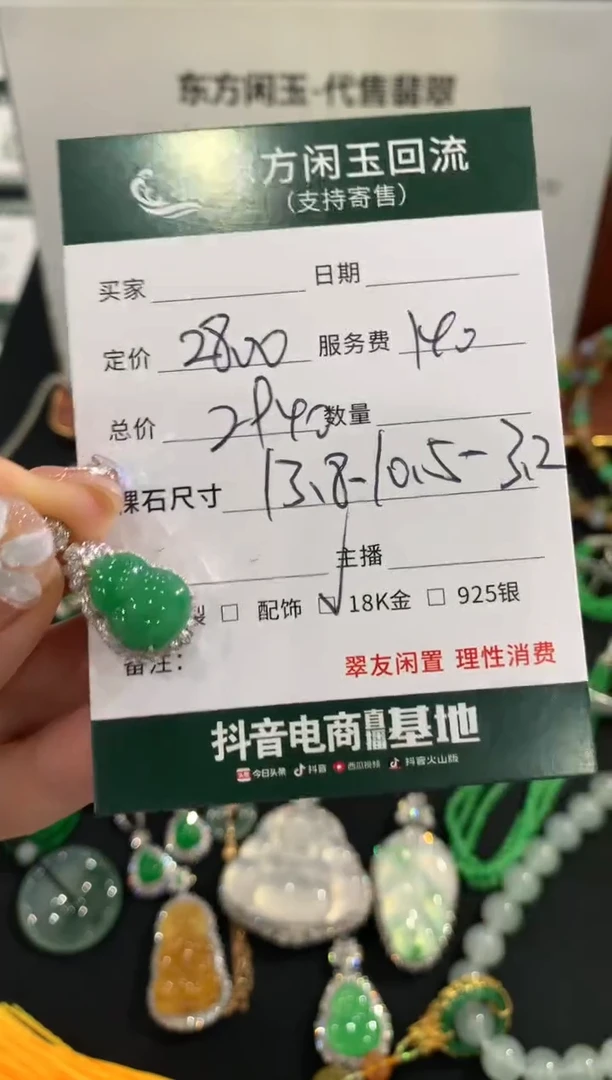 东方闲玉-代售翡翠
东方闲玉回流
(支持寄售)
买家 日期
定价 2800 服务费 140
总价 2940 数量
裸石尺寸 13.8-10.5-3.2
主播
裂 □ 配饰 ☑ 18K金 □ 925银
备注:
翠友闲置 理性消费
抖音电商直播基地
今日头条 抖音 西瓜视频 抖音火山版